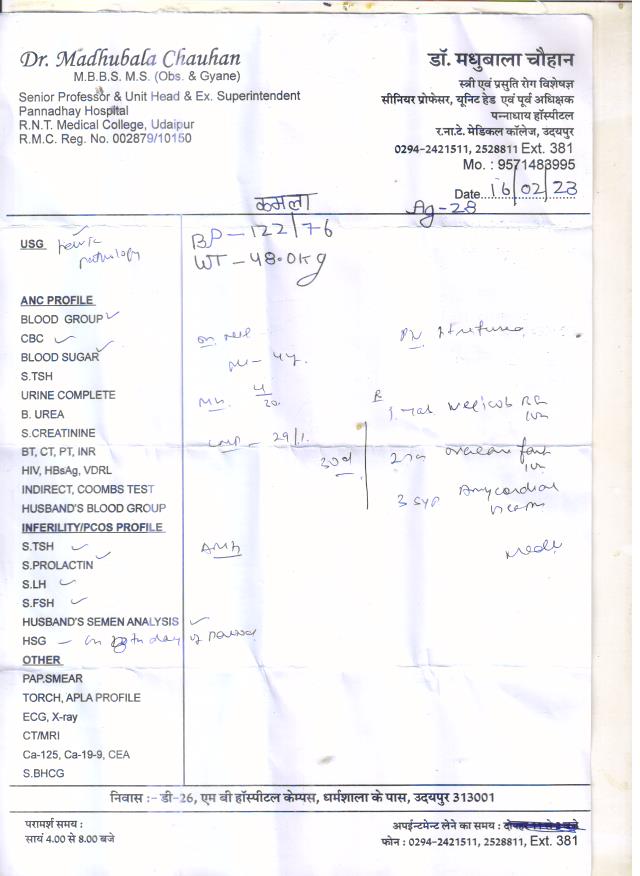 Dr. Madhubala Chauhan
M.B.B.S. M.S. (Obs. & Gyane)
Senior Professor & Unit Head & Ex. Superintendent
Pannadhay Hospital
R.N.T. Medical College, Udaipur
R.M.C. Reg. No. 002879/10150
डॉ. मधुबाला चौहान
स्त्री एवं प्रसुति रोग विशेषज्ञ
सीनियर प्रोफेसर, यूनिट हेड एवं पूर्व अधिक्षक
पन्नाधाय हॉस्पीटल
र.ना.टे. मेडिकल कॉलेज, उदयपुर
0294-2421511, 2528811 Ext. 381
Mo. : 9571483995
Date 16/02/23
कमला
Ag-28
BP-122/76
WT-48.0kg
USG pelvic
pathology
ANC PROFILE
BLOOD GROUP
CBC
BLOOD SUGAR
S.TSH
URINE COMPLETE
B. UREA
S.CREATININE
BT, CT, PT, INR
HIV, HBsAg, VDRL
INDIRECT, COOMBS TEST
HUSBAND'S BLOOD GROUP
INFERILITY/PCOS PROFILE
S.TSH
S.PROLACTIN
S.LH
S.FSH
HUSBAND'S SEMEN ANALYSIS
HSG - on 8th day of
OTHER
PAP.SMEAR
TORCH, APLA PROFILE
ECG, X-ray
CT/MRI
Ca-125, Ca-19-9, CEA
S.BHCG
4y
4/30
LMP - 29/1
30d
AMH
1. Tab
3 syp
निवास :- डी-26, एम बी हॉस्पीटल केम्पस, धर्मशाला के पास, उदयपुर 313001
परामर्श समय :
सायं 4.00 से 8.00 बजे
अपईन्टमेन्ट लेने का समय :
फोन : 0294-2421511, 2528811, Ext. 381